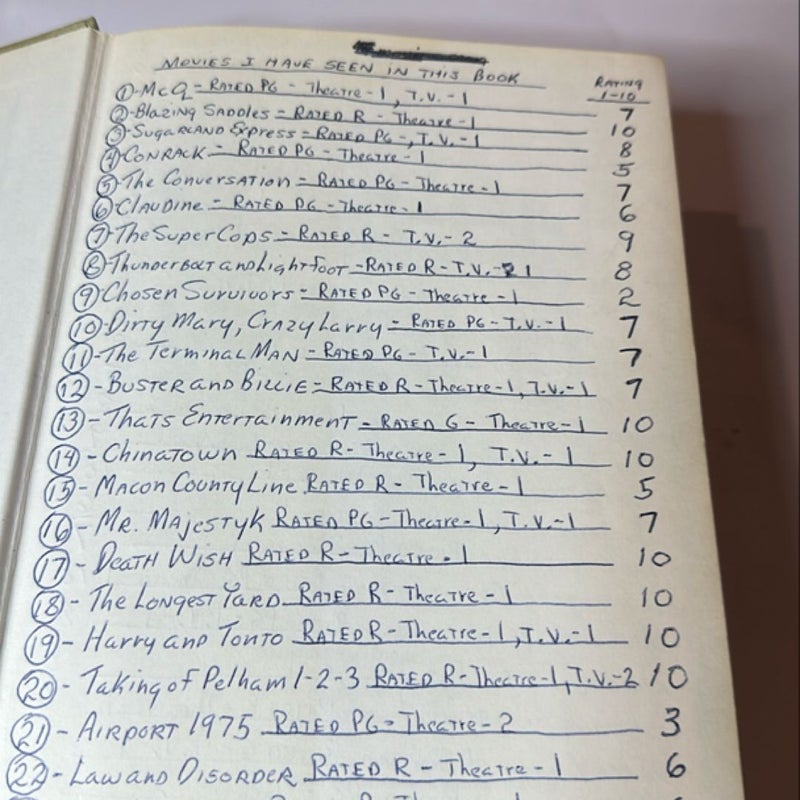 MOVIES I HAVE SEEN IN THIS BOOK
RATING
1-10
① - McQ = RATED PG - Theatre - 1, T.V. - 1 7
② - Blazing Saddles = RATED R - Theatre - 1 10
③ - Sugarland Express = RATED PG -, T.V. - 1 8
④ CONRACK = RATED PG - Theatre - 1 5
⑤ - The Conversation = RATED PG - Theatre - 1 7
⑥ - CLAUDINE = RATED PG - Theatre - 1 6
⑦ - The Super Cops = RATED R - T.V. - 2 9
⑧ - Thunderbolt and Lightfoot = RATED R - T.V. - 1 8
⑨ - Chosen Survivors = RATED PG - Theatre - 1 2
⑩ - Dirty Mary, Crazy Larry = RATED PG - T.V. - 1 7
⑪ - The Terminal MAN = RATED PG - T.V. - 1 7
⑫ - BUSTER AND BILLIE = RATED R - Theatre - 1, T.V. - 1 7
⑬ - Thats Entertainment = RATED G - Theatre - 1 10
⑭ - Chinatown RATED R - Theatre - 1, T.V. - 1 10
⑮ - Macon County Line RATED R - Theatre - 1 5
⑯ - MR. MAJESTYK RATED PG - Theatre - 1, T.V. - 1 7
⑰ - DEATH WISH RATED R - Theatre - 1 10
⑱ - The Longest Yard RATED R - Theatre - 1 10
⑲ - Harry and Tonto RATED R - Theatre - 1, T.V. - 1 10
⑳ - Taking of Pelham 1-2-3 RATED R - Theatre - 1, T.V. - 2 10
㉑ - AIRPORT 1975 RATED PG = Theatre - 2 3
㉒ - Law and DISORDER RATED R - Theatre - 1 6